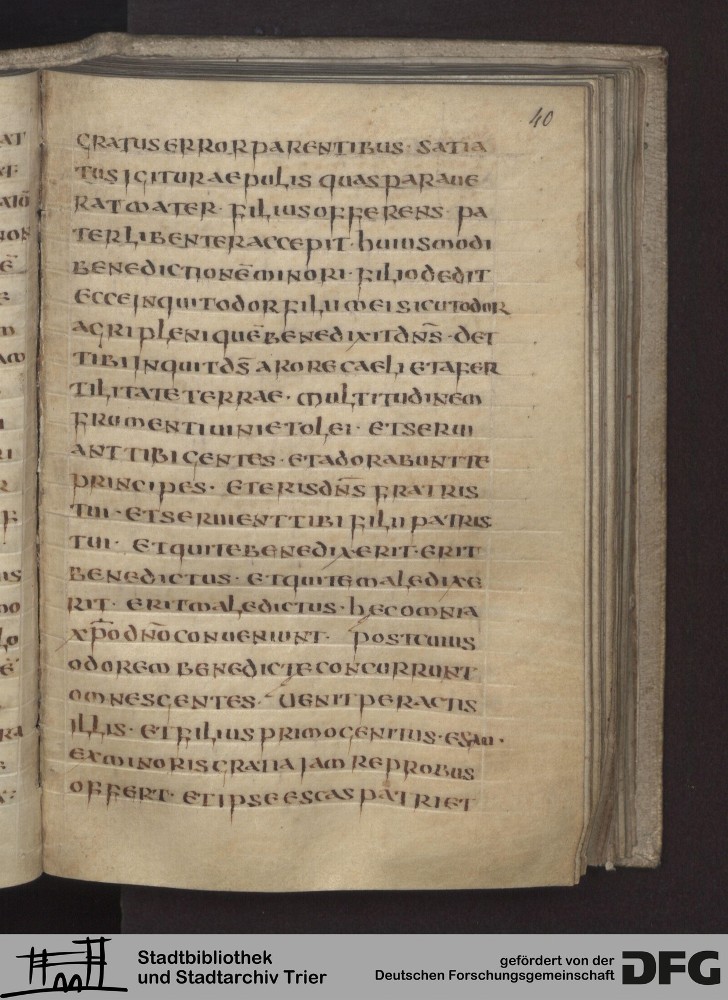 40
GRATUS ERROR PARENTIBUS · SATIA
TUS IGITUR AEPULIS QUAS PARAUE
RAT MATER · FILIUS OFFERENS · PA
TER LIBENTER ACCEPIT · HUIUSMODI
BENEDICTIONEM̄ MINORI · FILIO DEDIT
ECCE INQUIT ODOR FILII MEI SICUT ODOR
AGRI PLENI QUĒ BENEDIXIT DN̄S · DET
TIBI INQUIT DS̄ A RORE CAELI ET A FER
TILITATE TERRAE · MULTITUDINEM
FRUMENTI UINI ET OLEI · ET SERUI
ANT TIBI GENTES · ET ADORABUNT TE
PRINCIPES · ET ERIS DN̄S FRATRIS
TUI · ET SERUIENT TIBI FILII PATRIS
TUI · ET QUI TE BENEDIXERIT · ERIT
BENEDICTUS · ET QUI TE MALEDIXE
RIT · ERIT MALEDICTUS · HEC OMNIA
XP̄O DN̄O CONUENIUNT · POST CUIUS
ODOREM BENEDICTE CONCURRUNT
OMNES GENTES · UENIT PERACTIS
ILLIS · ET FILIUS PRIMOGENITUS · ESAU ·
EX MINORIS GRATIA IAM REPROBUS
OFFERT · ET IPSE ESCAS PATRI ET
Stadtbibliothek
und Stadtarchiv Trier
gefördert von der
Deutschen Forschungsgemeinschaft
DFG